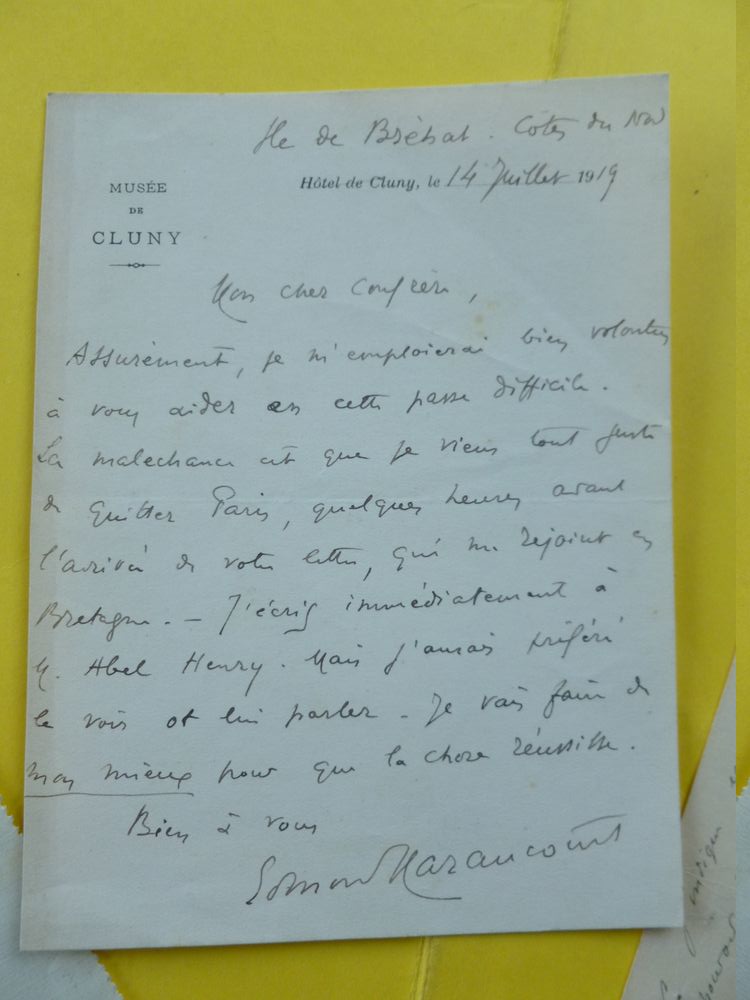 Ile de Bréhat. Côtes du Nord
MUSÉE
DE
CLUNY
Hôtel de Cluny, le 14 Juillet 1919
Mon cher Confrère,
Assurément, je m'emploierai bien volontiers
à vous aider en cette passe difficile.
La malechance est que je viens tout juste
de quitter Paris, quelques heures avant
l'arrivée de votre lettre, qui me rejoint en
Bretagne. – J'écris immédiatement à
M. Abel Henry. Mais j'aurais préféré
le voir et lui parler. Je vais faire de
mon mieux pour que la chose réussisse.
Bien à vous
Edmond Haraucourt
indique